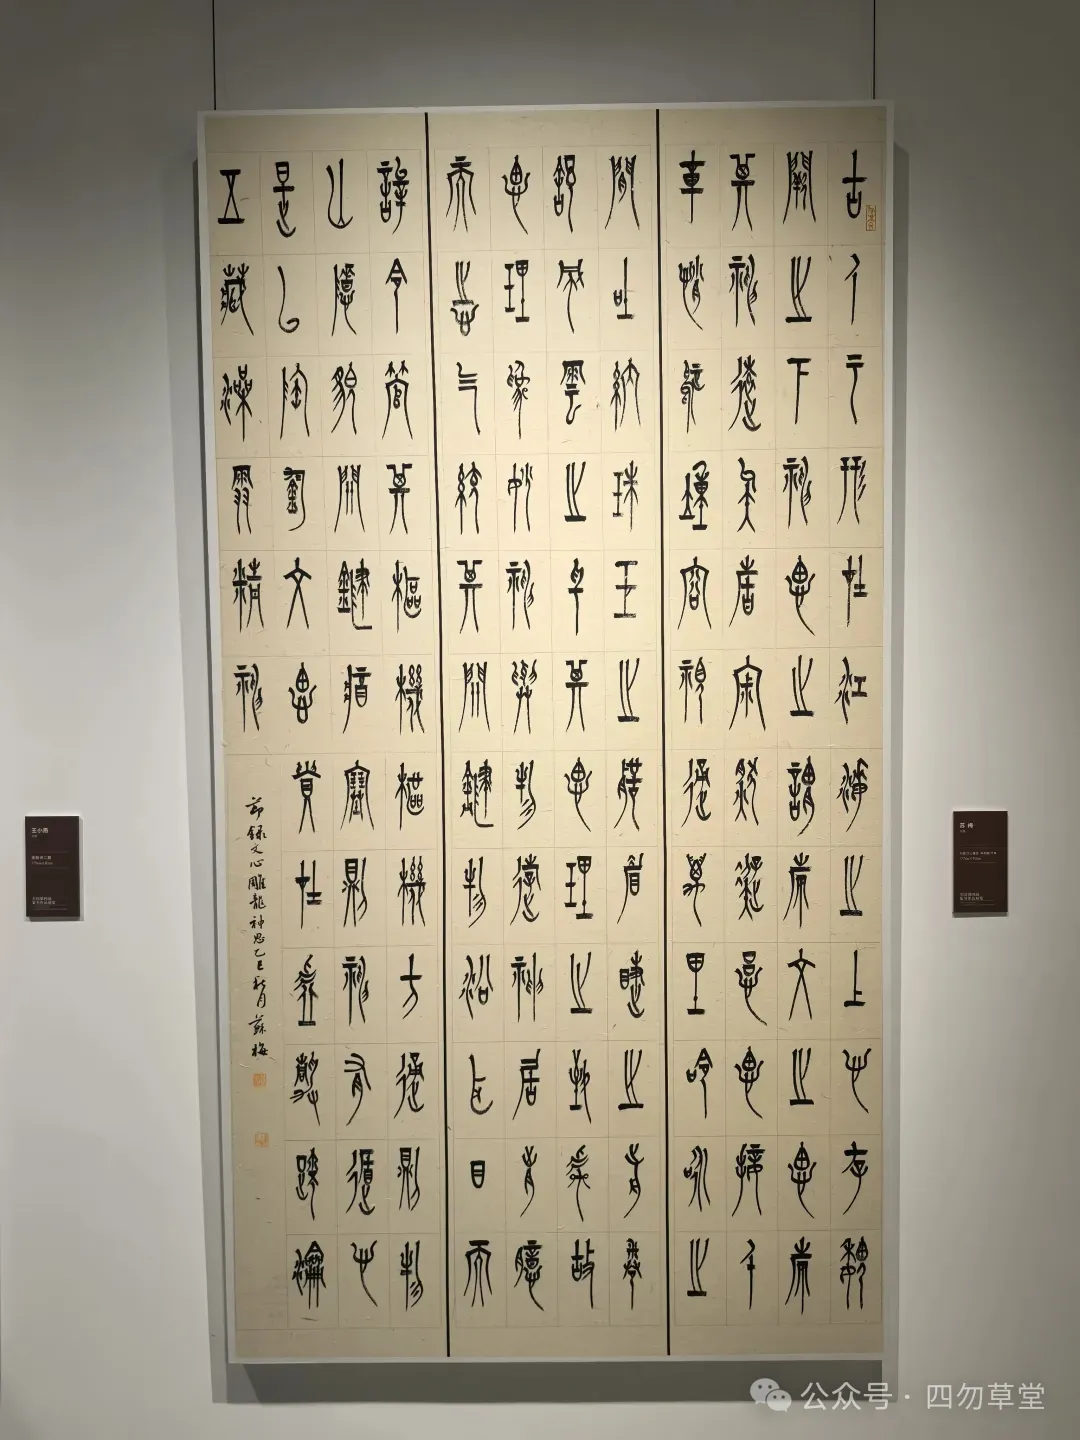 古人云形在江海之上心存魏
闕之下神思之謂也文之思也
其神遠矣故寂然凝慮思接千
載悄焉動容視通萬里吟詠之
間吐納珠玉之聲眉睫之前卷
舒風雲之色其思理之致乎故
思理為妙神與物遊神居胸臆
而志气統其關鍵物沿耳目而
辭令管其樞機樞機方通則物
亡隱貌關鍵將塞則神有遁心
是以陶鈞文思貴在虛靜疏瀹
五藏澡雪精神
節録文心雕龍神思乙巳秋月蘇梅
王小雨
苏 梅
公众号 · 四勿草堂